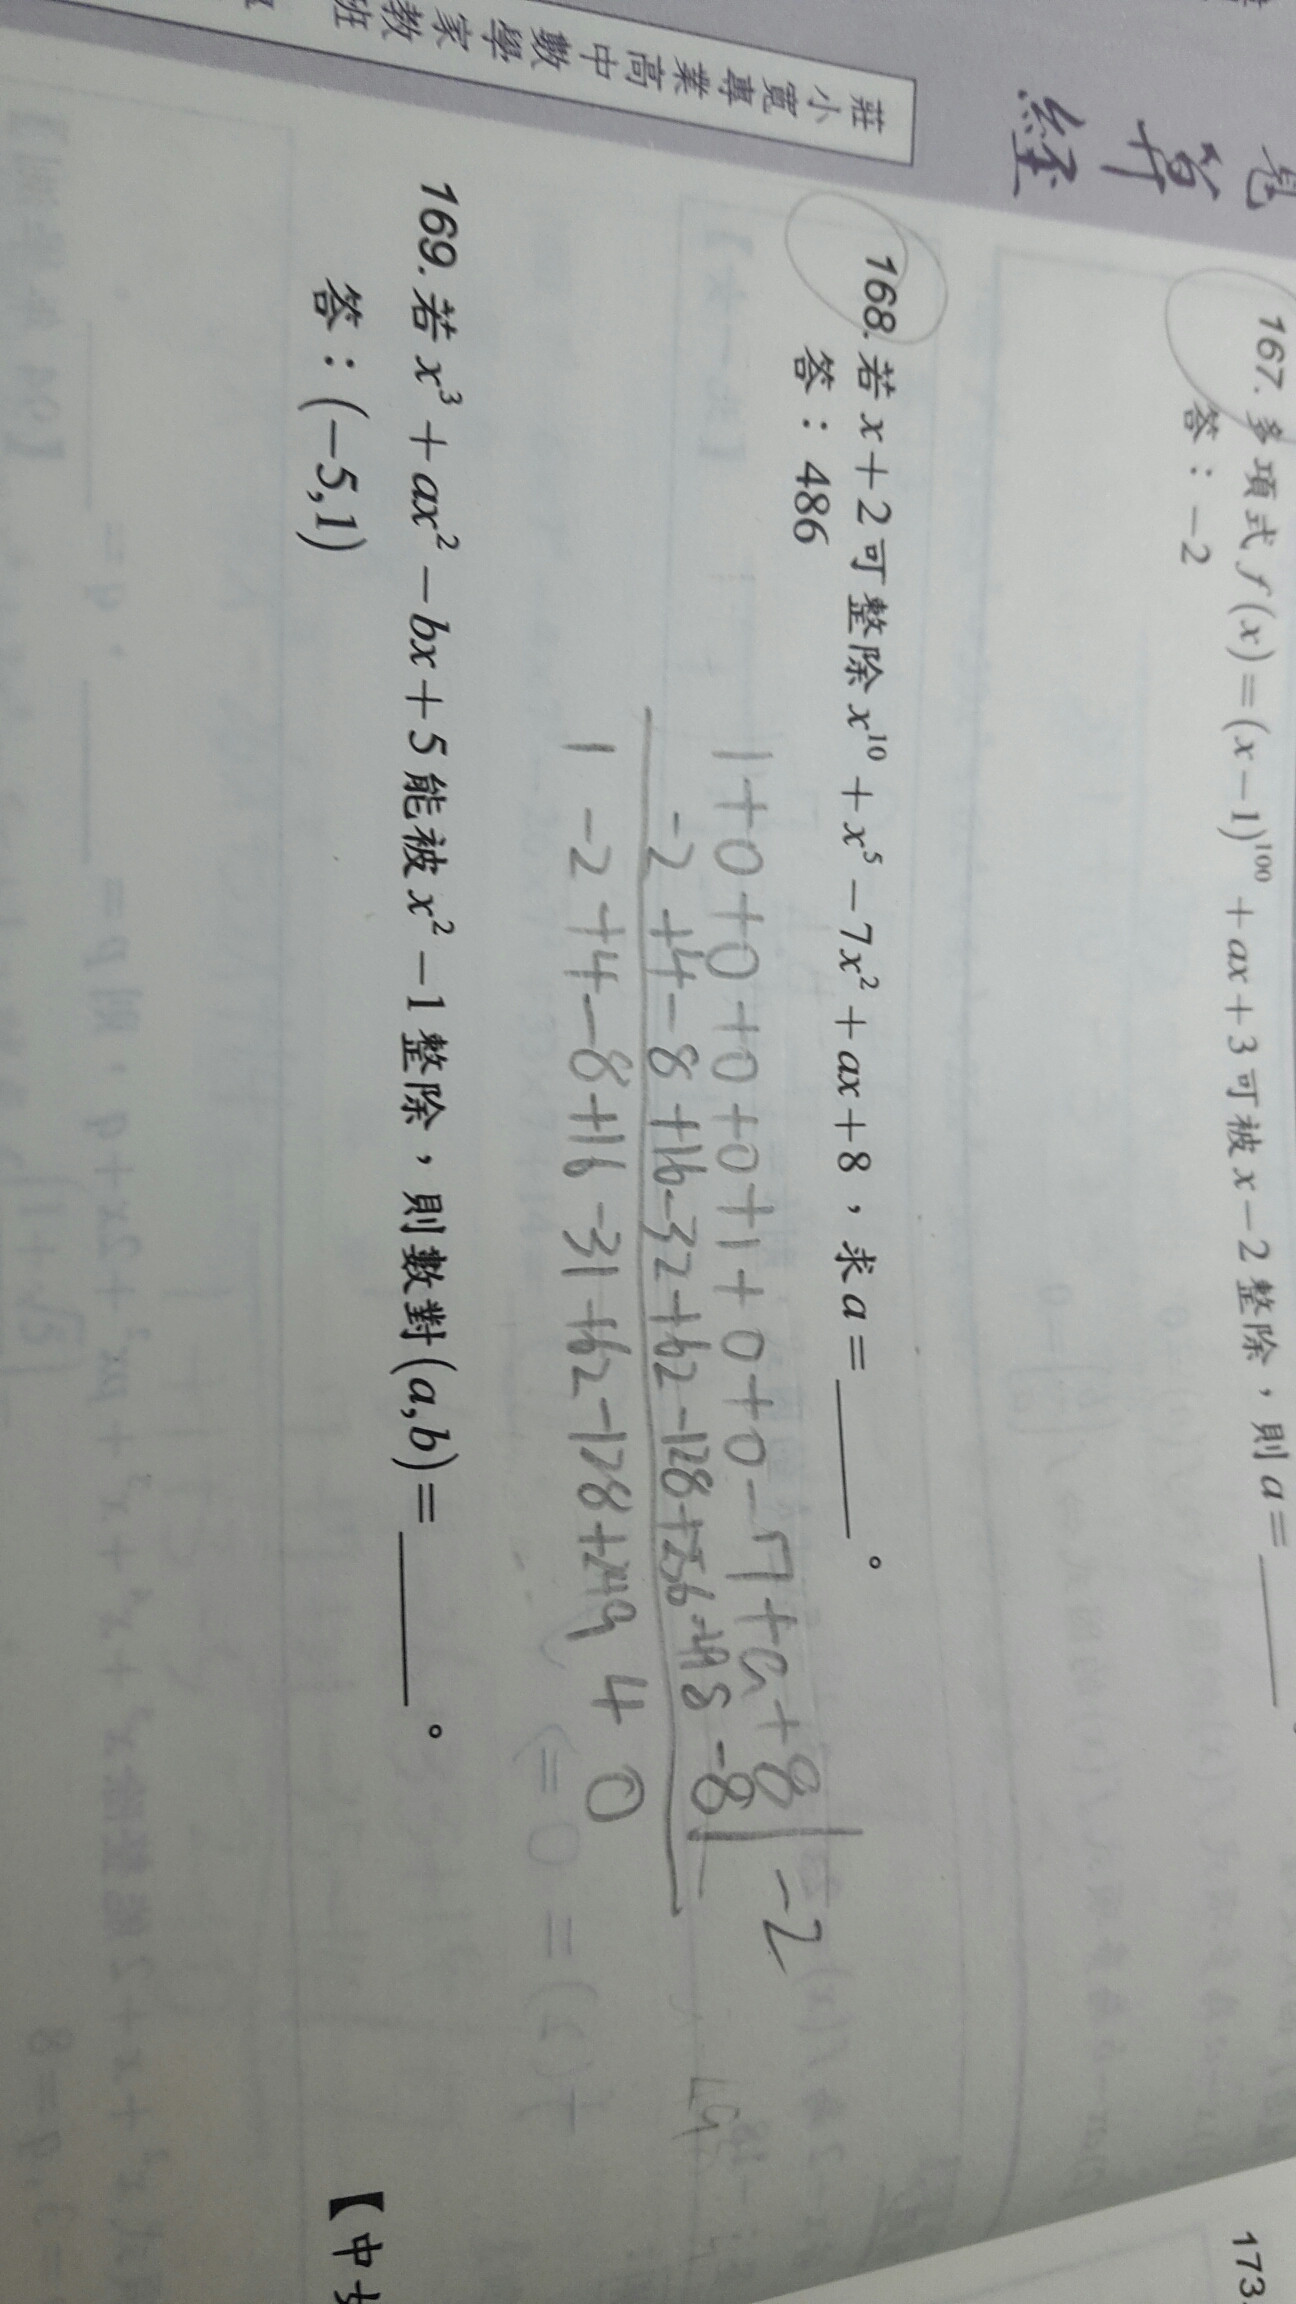 莊小寬專業高中數學家教班
算經
167. 多項式 f(x)=(x-1)¹⁰⁰+ax+3可被x-2整除，則a=______
答：-2
168. 若x+2可整除x¹⁰+x⁵-7x²+ax+8，求a=______。
答：486
1+0+0+0+0+1+0+0-7+a+8 | -2
-2+4-8+16-32+62-128+256-498-8
1 -2+4-8+16-31+62-128+249 4 0
169. 若x³+ax²-bx+5能被x²-1整除，則數對(a,b)=______。
答：(-5,1)
【中
173.